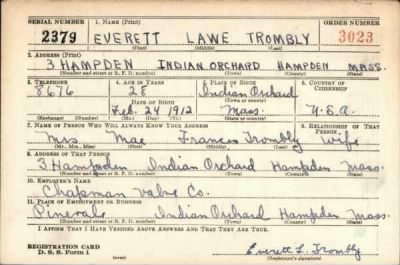 SERIAL NUMBER 1. NAME (Print) ORDER NUMBER
2379 EVERETT LAWE TROMBLY 3023
(First) (Middle) (Last)
2. ADDRESS (Print)
3 HAMPDEN INDIAN ORCHARD HAMPDEN MASS.
(Number and street or R. F. D. number) (Town) (County) (State)
3. TELEPHONE 4. AGE IN YEARS 5. PLACE OF BIRTH 6. COUNTRY OF CITIZENSHIP
8676 28 Indian Orchard
DATE OF BIRTH (Town or county)
Feb. 24 1912 Mass. U.S.A.
(Exchange) (Number) (Mo.) (Day) (Yr.) (State or country)
7. NAME OF PERSON WHO WILL ALWAYS KNOW YOUR ADDRESS 8. RELATIONSHIP OF THAT PERSON
Mrs Mae Frances Trombly Wife
(Mr., Mrs., Miss) (First) (Middle) (Last)
9. ADDRESS OF THAT PERSON
3 Hampden Indian Orchard Hampden Mass.
(Number and street or R. F. D. number) (Town) (County) (State)
10. EMPLOYER'S NAME
Chapman Valve Co.
11. PLACE OF EMPLOYMENT OR BUSINESS
Pinevale Indian Orchard Hampden Mass.
(Number and street or R. F. D. number) (Town) (County) (State)
I AFFIRM THAT I HAVE VERIFIED ABOVE ANSWERS AND THAT THEY ARE TRUE.
REGISTRATION CARD
D. S. S. Form 1 Everett L. Trombly
(over) (Registrant's signature)